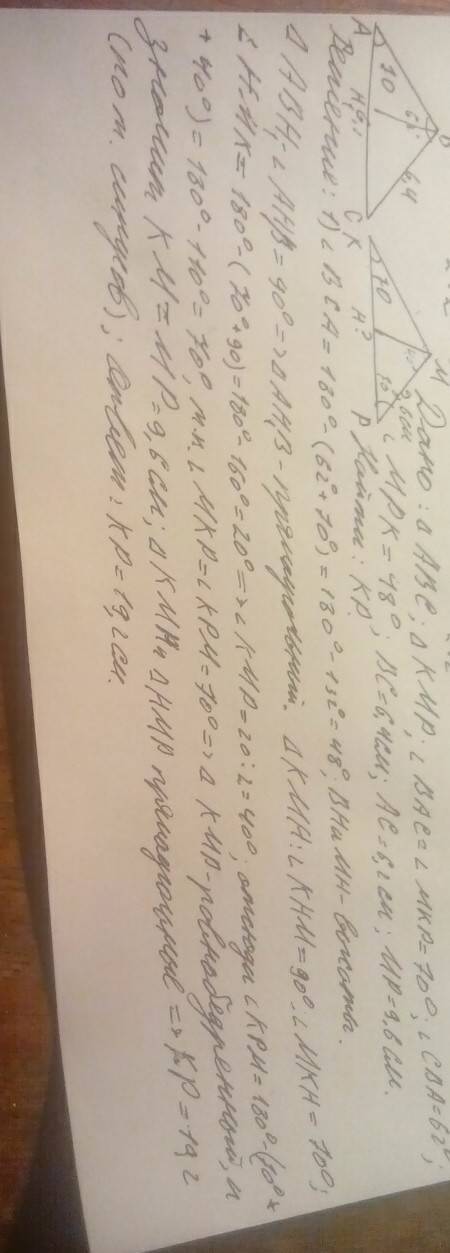 Дано: ΔABC; ΔKMP; ∠BAC=∠MKP=70°; ∠CBA=62°;
∠MPK=48°; BC=6,4см; AC=6,2см; MP=9,6см.
Найти: KP.
Решение: 1) ∠BCA=180°-(62°+70°)=180°-132°=48°, BH и MH-высоты.
ΔABH; ∠AHB=90°=>ΔAHB-прямоугольный. ΔKMH: ∠KHM=90°; ∠MKH=70°;
=180°-(70°+90)=180°-160°=20°=>∠KMP=20:2=40°; отсюда ∠KPM=180°-(70°+
+40°)=180°-110°=70°, т.к. ∠MKP=∠KPM=70°=>Δ KMP-равнобедренный, и
значит KM=MP=9,6см; ΔKMH и ΔHMP прямоугольные => KP=19,2
(по т. синусов); Ответ: KP=19,2см.
A
C
K
M
P
70
64
70
9,6см